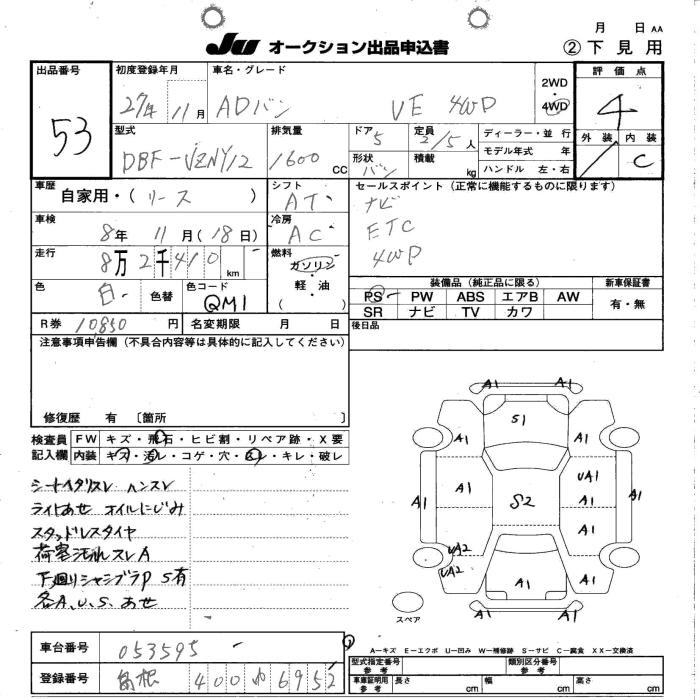 月 日 AA
JU オークション出品申込書
② 下見用
出品番号
53
初度登録年月
27年 11月
車名・グレード
ADバン VE 4WD
2WD・4WD
評価点
4
外装 内装
C
型式
DBF-VZNY12
排気量
1600 CC
ドア
5
形状
バン
定員
2/5人
積載
kg
ディーラー・並 行
モデル年式 年
ハンドル 左・右
車歴
自家用・(リース)
シフト
AT
セールスポイント(正常に機能するものに限ります)
ナビ
ETC
4WD
車検
8年 11月(18日)
冷房
AC
走行
8万2千410km
燃料
ガソリン
軽油
( )
色
白
色替
色コード
QM1
装備品(純正品に限る)
PS PW ABS エアB AW
SR ナビ TV カワ
新車保証書
有・無
R券 10850円
名変期限 月 日
後日品
注意事項申告欄(不具合内容等は具体的に記入してください)
修復歴 有 [箇所 ]
検査員記入欄
FW キズ・飛石・ヒビ割・リペア跡・X要
内装 キズ・汚レ・コゲ・穴・・キレ・破レ
シートヘタリスレ ハンスレ
ライトあせ オイルにじみ
スタッドレスタイヤ
荷室汚れスレA
下廻りシャシブラP S有
各A.U.S.あせ
A1 A1
S1
A1 A1
A1 A1 S2 UA1 A1 A1
A1
UA2
UA2
A1 A1
A1 A1
スペア
車台番号
053595
登録番号
島根 400 6952
A－キズ E－エクボ U－凹み W－補修跡 S－サビ C－腐食 XX－交換済
型式指定番号
参考
類別区分番号
参考
車庫証明用
参考
長さ cm 幅 cm 高さ cm